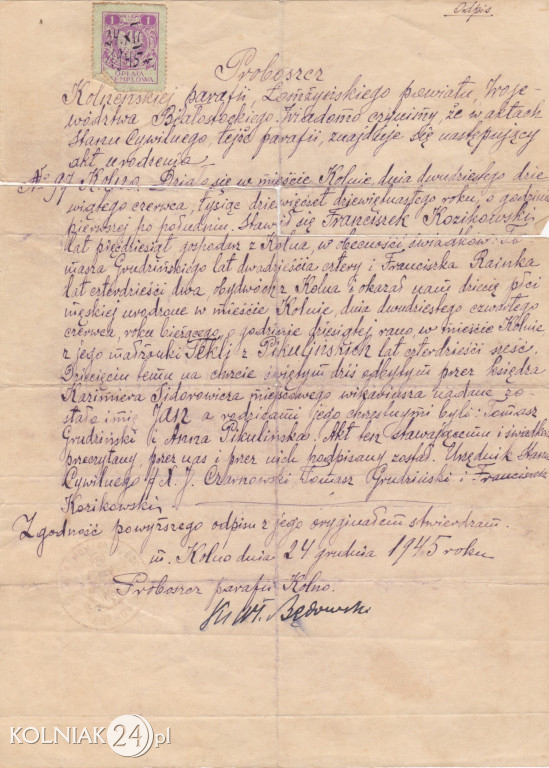 Odpis.
1 1
24 XII
1945
OPŁATA
STEMPLOWA
Proboszcz
Kolneńskiej parafii, Łomżyńskiego powiatu, Woje-
wództwa Białostockiego. Wiadomo czynimy, że w aktach
Stanu Cywilnego, tejże parafii, znajduje się następujący
akt urodzenia
No 97 Kolno. Działo się w mieście Kolnie, dnia dwudziestego dzie
wiątego czerwca, tysiąc dziewięćset dziewiętnastego roku, o godzinie
pierwszej po południu. Stawił się Franciszek Kozikowski
lat pięćdziesiąt gospodarz z Kolna, w obecności świadków: To
masza Grudzińskiego lat dwadzieścia cztery i Franciszka Rainka
lat czterdzieści dwa, obydwóch z Kolna i okazał nam dziecię płci
męskiej urodzone w mieście Kolnie, dnia dwudziestego czwartego
czerwca, roku bieżącego, o godzinie dziesiątej rano, w mieście Kolnie
z jego małżonki Tekli z Pikulińskich lat czterdzieści sześć.
Dziecięciu temu na chrzcie świętym dziś odbytym przez księdza
Kazimierza Sidorowicza miejscowego wikariusza nadane zo-
stało imię Jan a rodzicami jego chrzestnymi byli: Tomasz
Grudziński i Anna Pikulińska. Akt ten stawającemu i świadkom
przeczytany przez nas i przez nich podpisany został. Urzędnik Stanu
Cywilnego X. J. Czarnowski Tomasz Grudziński i Franciszek
Kozikowski
Zgodność powyższego odpisu z jego oryginałem stwierdzam.
m. Kolno dnia 24 grudnia 1945 roku
Proboszcz parafii Kolno.
Ks Wł. Będowski
KOLNIAK 24.pl